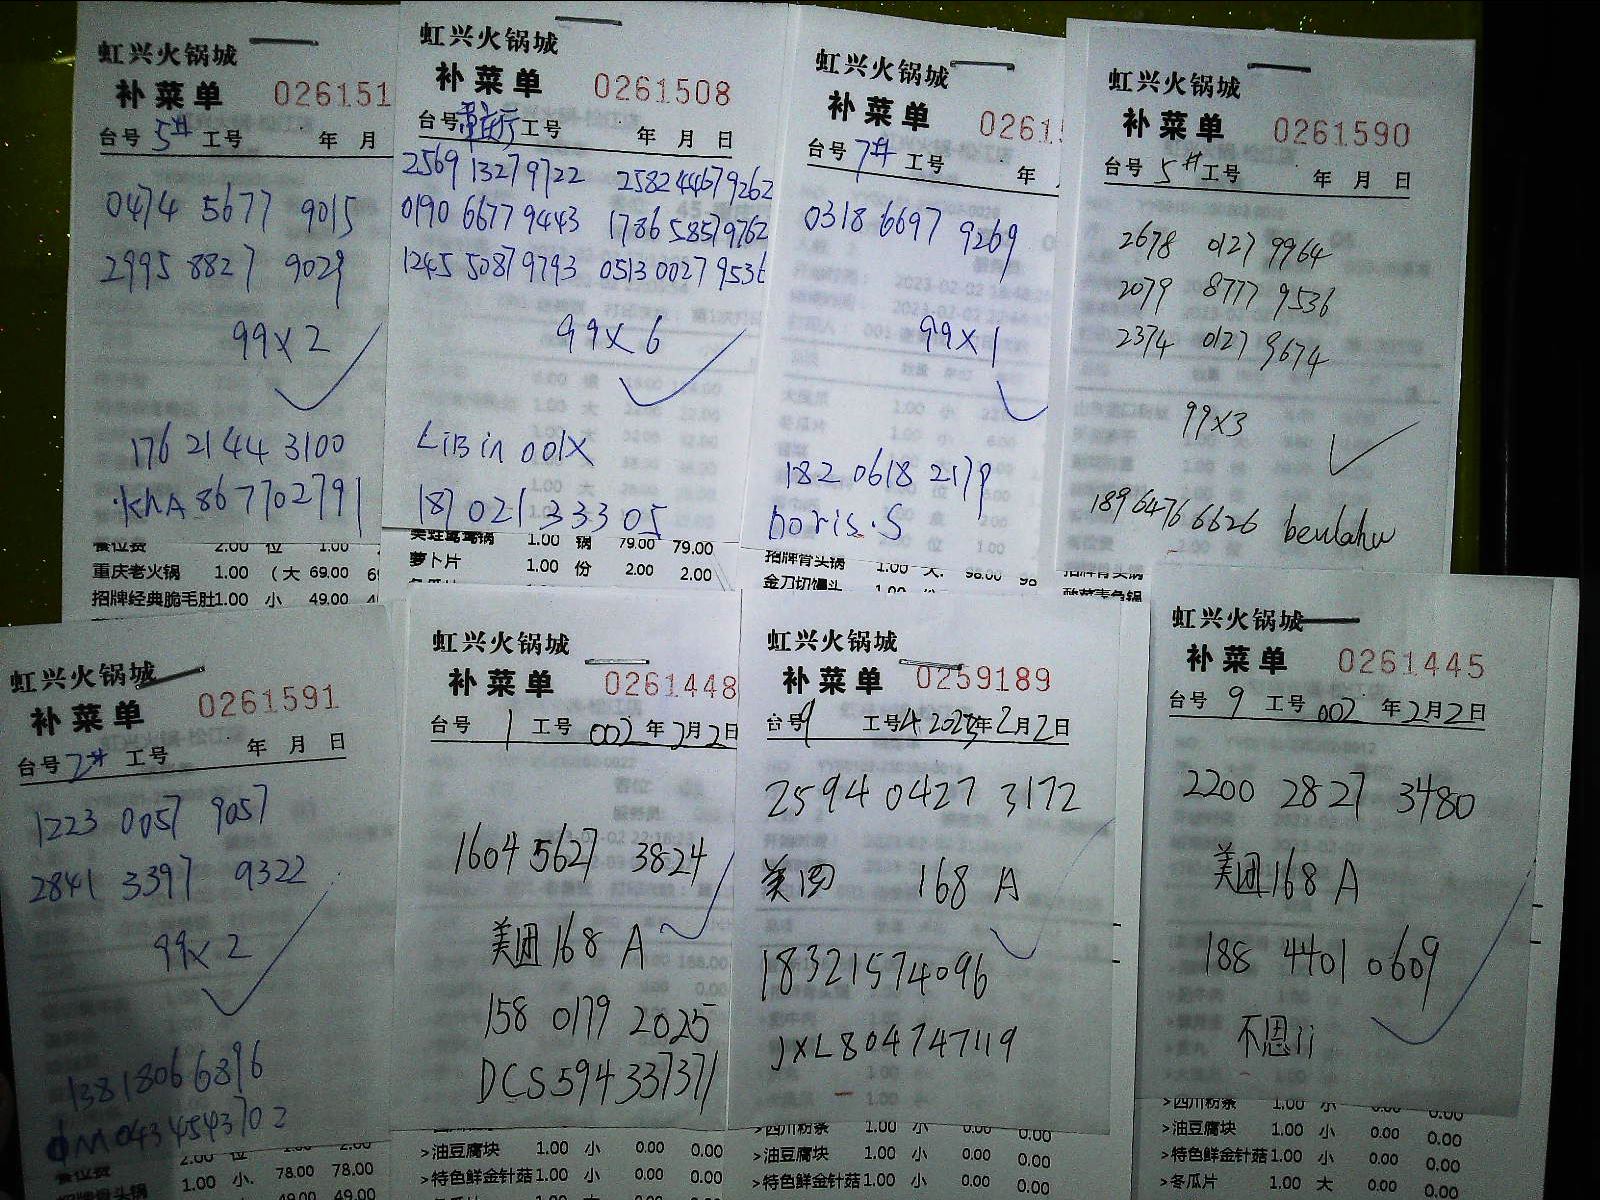 虹兴火锅城
补菜单 026151
台号 5# 工号 年 月
0474 5677 9015
2995 8827 9029
99×2
176 2144 3100
khA867702791
餐位费 2.00 位 1.00
重庆老火锅 1.00 (大 69.00 6
招牌经典脆毛肚1.00 小 49.00 4
虹兴火锅城
补菜单 0261508
台号 重庆厅 工号 年 月 日
2569 1327 9722 2582 4467 9262
0190 6677 9443 1786 5857 9762
1245 5087 9793 0513 0027 9536
99×6
LiBin 001X
187 0213 3305
1.00 锅 79.00 79.00
萝卜片 1.00 份 2.00 2.00
虹兴火锅城
补菜单 0261
台号 7# 工号 年
0318 6697 9269
99×1
182 0618 2179
Doris.S
招牌骨头锅 1.00 大. 98.00 98
金刀切馒头
虹兴火锅城
补菜单 0261590
台号 5# 工号 年 月 日
2678 0127 9964
2079 8777 9536
2374 0127 9674
99×3
189 6476 6626 beulahw
招牌骨头锅
虹兴火锅城
补菜单 0261591
台号 2# 工号 年 月 日
1223 0057 9057
2841 3397 9322
99×2
138 1806 6896
M0434543702
餐位费 2.00 位 2.00
招牌骨头锅 1.00 小. 78.00 78.00
49.00 49.00
虹兴火锅城
补菜单 0261448
台号 1 工号 002 年2月2日
1604 5627 3824
美团168 A
158 0179 2025
DCS594337371
>油豆腐块 1.00 小 0.00 0.00
>特色鲜金针菇 1.00 小 0.00 0.00
虹兴火锅城
补菜单 0259189
台号9 工号4 2023年2月2日
2594 0427 3172
美团 168 A
18321574096
JXL804747119
>四川粉条 1.00 小 0.00 0.00
>油豆腐块 1.00 小 0.00 0.00
>特色鲜金针菇1.00 小 0.00 0.00
虹兴火锅城
补菜单 0261445
台号 9 工号 002 年2月2日
2200 2827 3480
美团168 A
188 4401 0609
不恩ii
>四川粉条 1.00 小 0.00 0.00
>油豆腐块 1.00 小 0.00 0.00
>特色鲜金针菇1.00 小 0.00 0.00
>冬瓜片 1.00 大 0.00 0.00